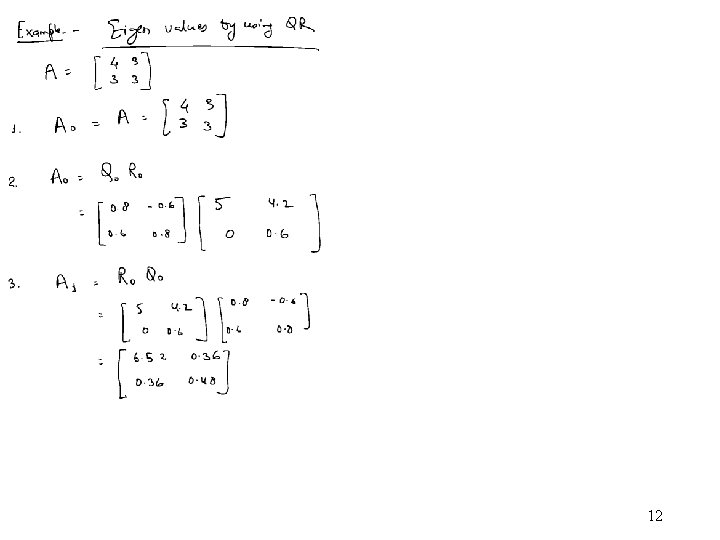 Example. - Eigen values by using QR
A = [ 4 3
3 3 ]
1. A₀ = A = [ 4 3
3 3 ]
2. A₀ = Q₀ R₀
= [ 0.8 -0.6 ] [ 5 4.2 ]
[ 0.6 0.8 ] [ 0 0.6 ]
3. A₁ = R₀ Q₀
= [ 5 4.2 ] [ 0.8 -0.6 ]
[ 0 0.6 ] [ 0.6 0.8 ]
= [ 6.52 0.36 ]
[ 0.36 0.48 ]
12